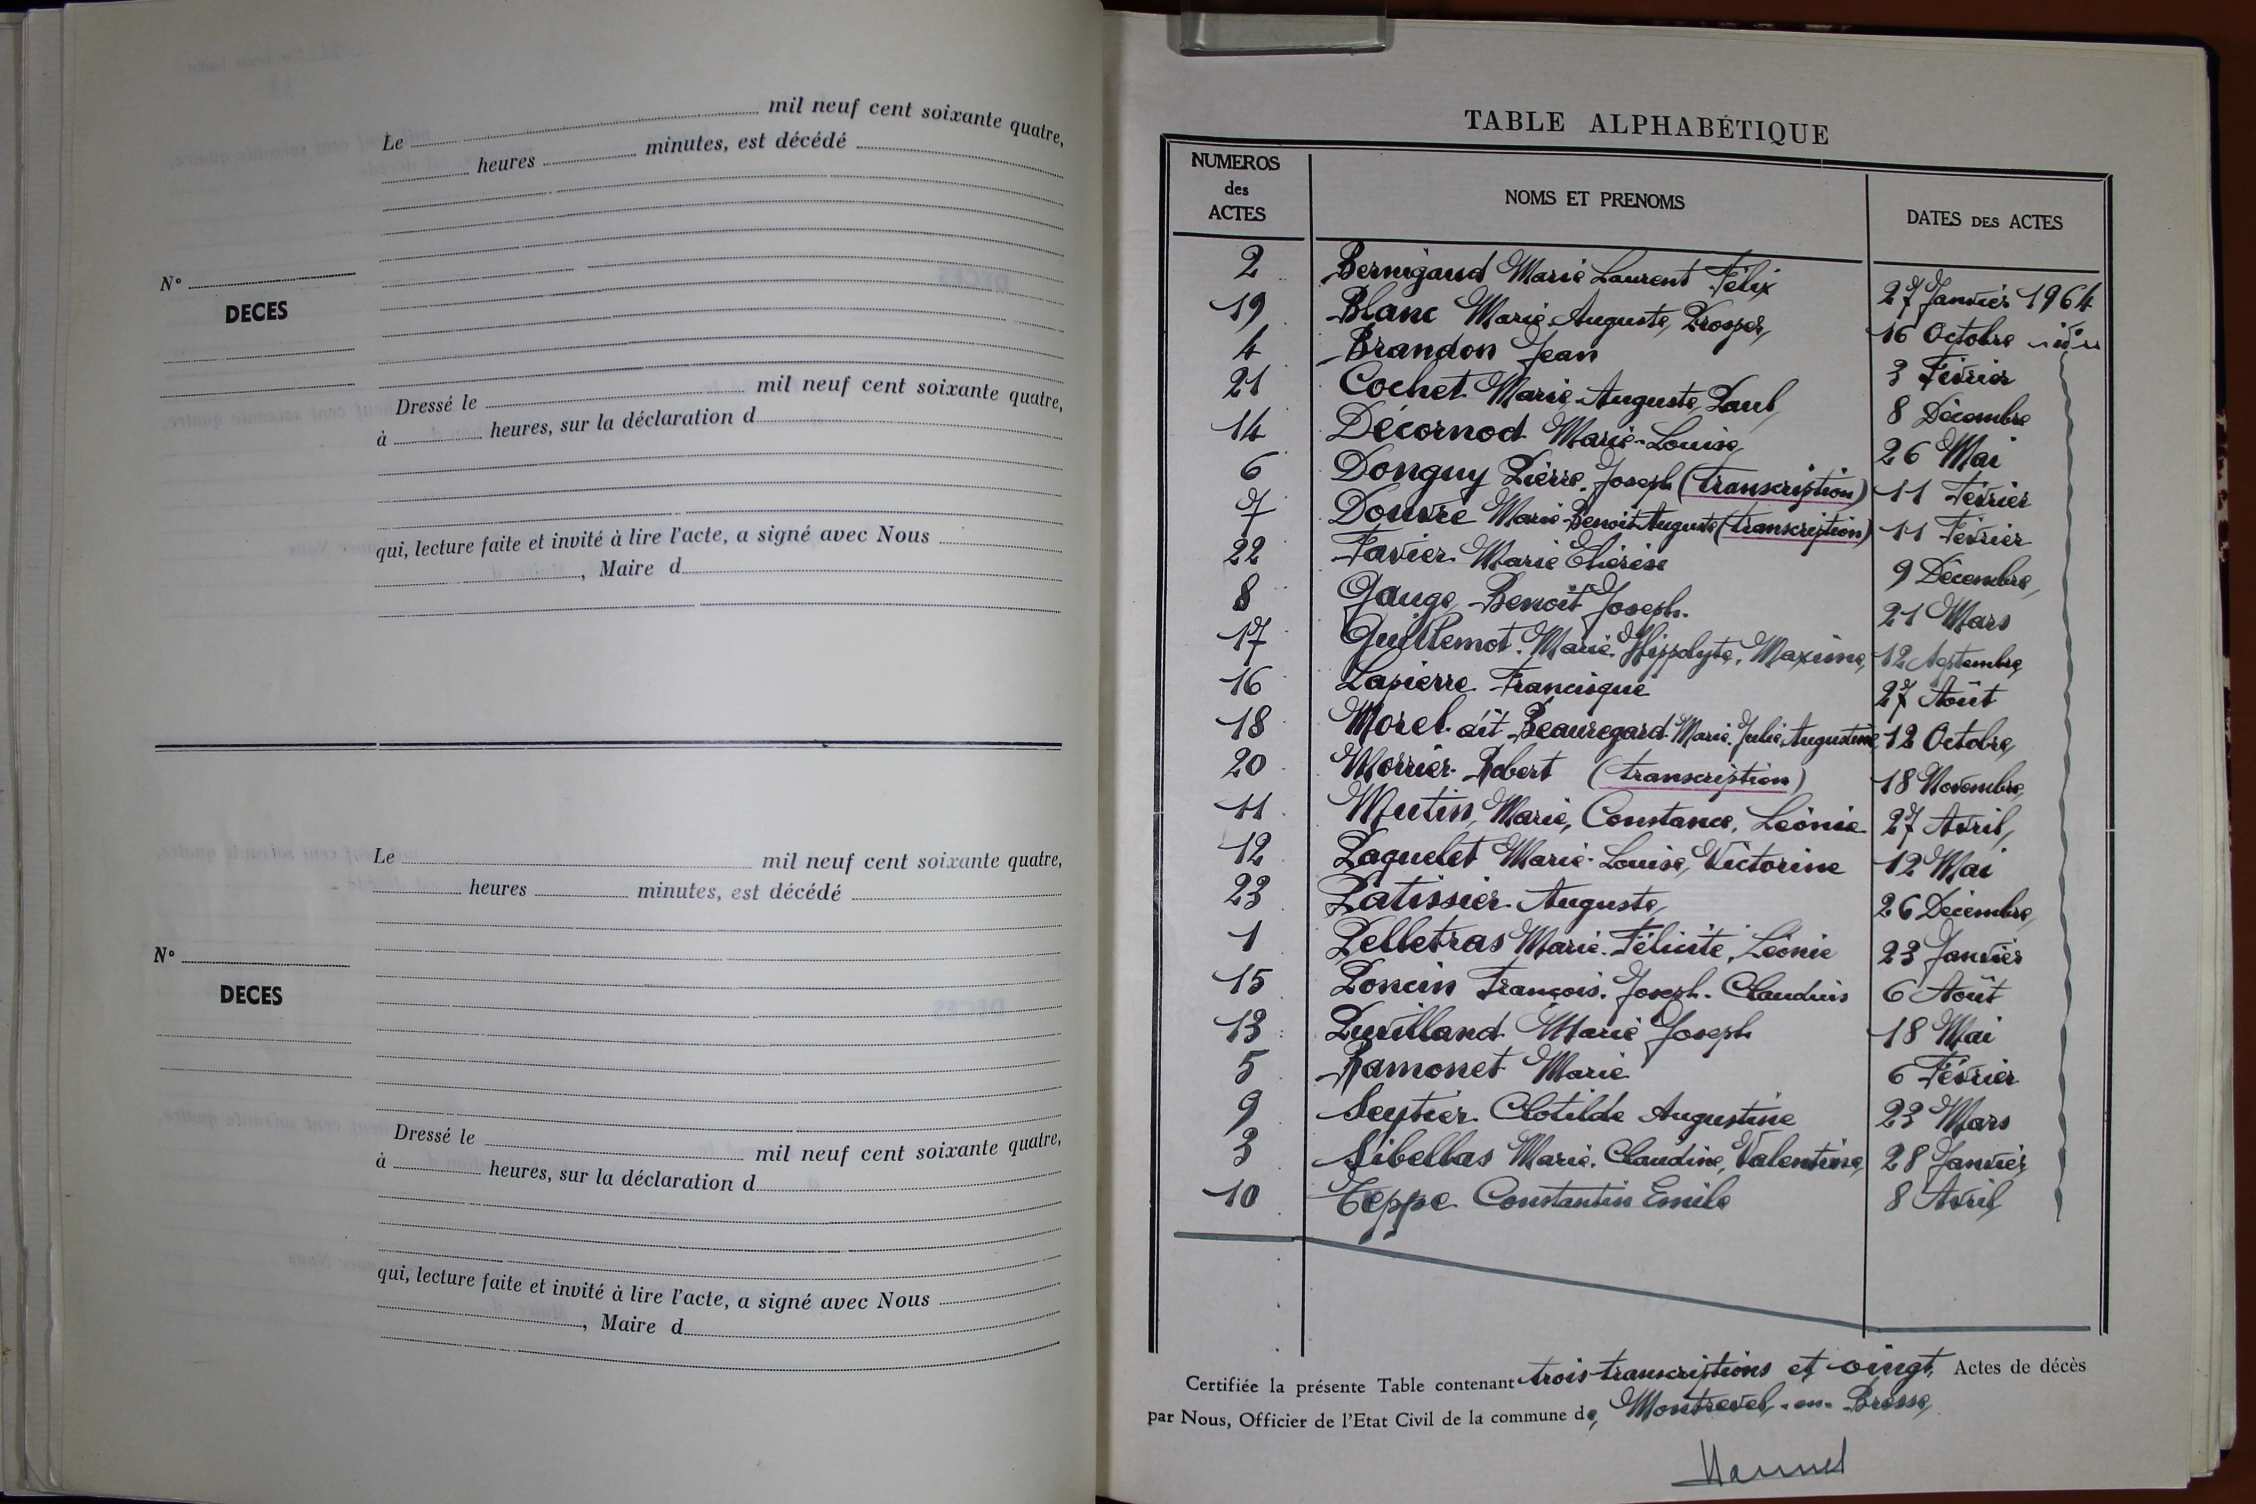 Le mil neuf cent soixante quatre,
heures minutes, est décédé
N°
DECES
Dressé le mil neuf cent soixante quatre,
à heures, sur la déclaration d
qui, lecture faite et invité à lire l'acte, a signé avec Nous
, Maire d
Le mil neuf cent soixante quatre,
heures minutes, est décédé
N°
DECES
Dressé le mil neuf cent soixante quatre,
à heures, sur la déclaration d
qui, lecture faite et invité à lire l'acte, a signé avec Nous
, Maire d
TABLE ALPHABÉTIQUE
NUMEROS des ACTES NOMS ET PRENOMS DATES DES ACTES
2 Bernigaud Marie Laurent Félix 27 Janvier 1964
19 Blanc Marie Auguste, Prosper, 16 Octobre
4 Brandon Jean 3 Février
21 Cochet Marie Auguste, Paul, 8 Décembre
14 Décornod Marie-Louise 26 Mai
6 Donguy Pierre Joseph (transcription) 11 Février
7 Douvre Marie Benoit Auguste (transcription) 11 Février
22 Favier Marie Thérèse 9 Décembre
8 Gauge Benoît Joseph. 21 Mars
17 Guillemot Marie Hippolyte, Maxime, 12 Septembre
16 Lapierre Francisque 27 Août
18 Morel dit Beauregard Marie Julie Augustine 12 Octobre
20 Morrier Robert (transcription) 18 Novembre
11 Mutin, Marie, Constance, Léonie 27 Avril
12 Paguelet Marie-Louise, Victorine 12 Mai
23 Patissier Auguste, 26 Décembre
1 Pelletras Marie Félicité, Léonie 23 Janvier
15 Poncin François Joseph Claudius 6 Août
13 Puvilland Marie Joseph 18 Mai
5 Ramonet Marie 6 Février
9 Seytier Clotilde Augustine 23 Mars
3 Sibellas Marie Claudine, Valentine, 28 Janvier
10 Teppe Constantin Emile 8 Avril
Certifiée la présente Table contenant trois transcriptions et vingt Actes de décès
par Nous, Officier de l'Etat Civil de la commune de Montrevel-en-Bresse